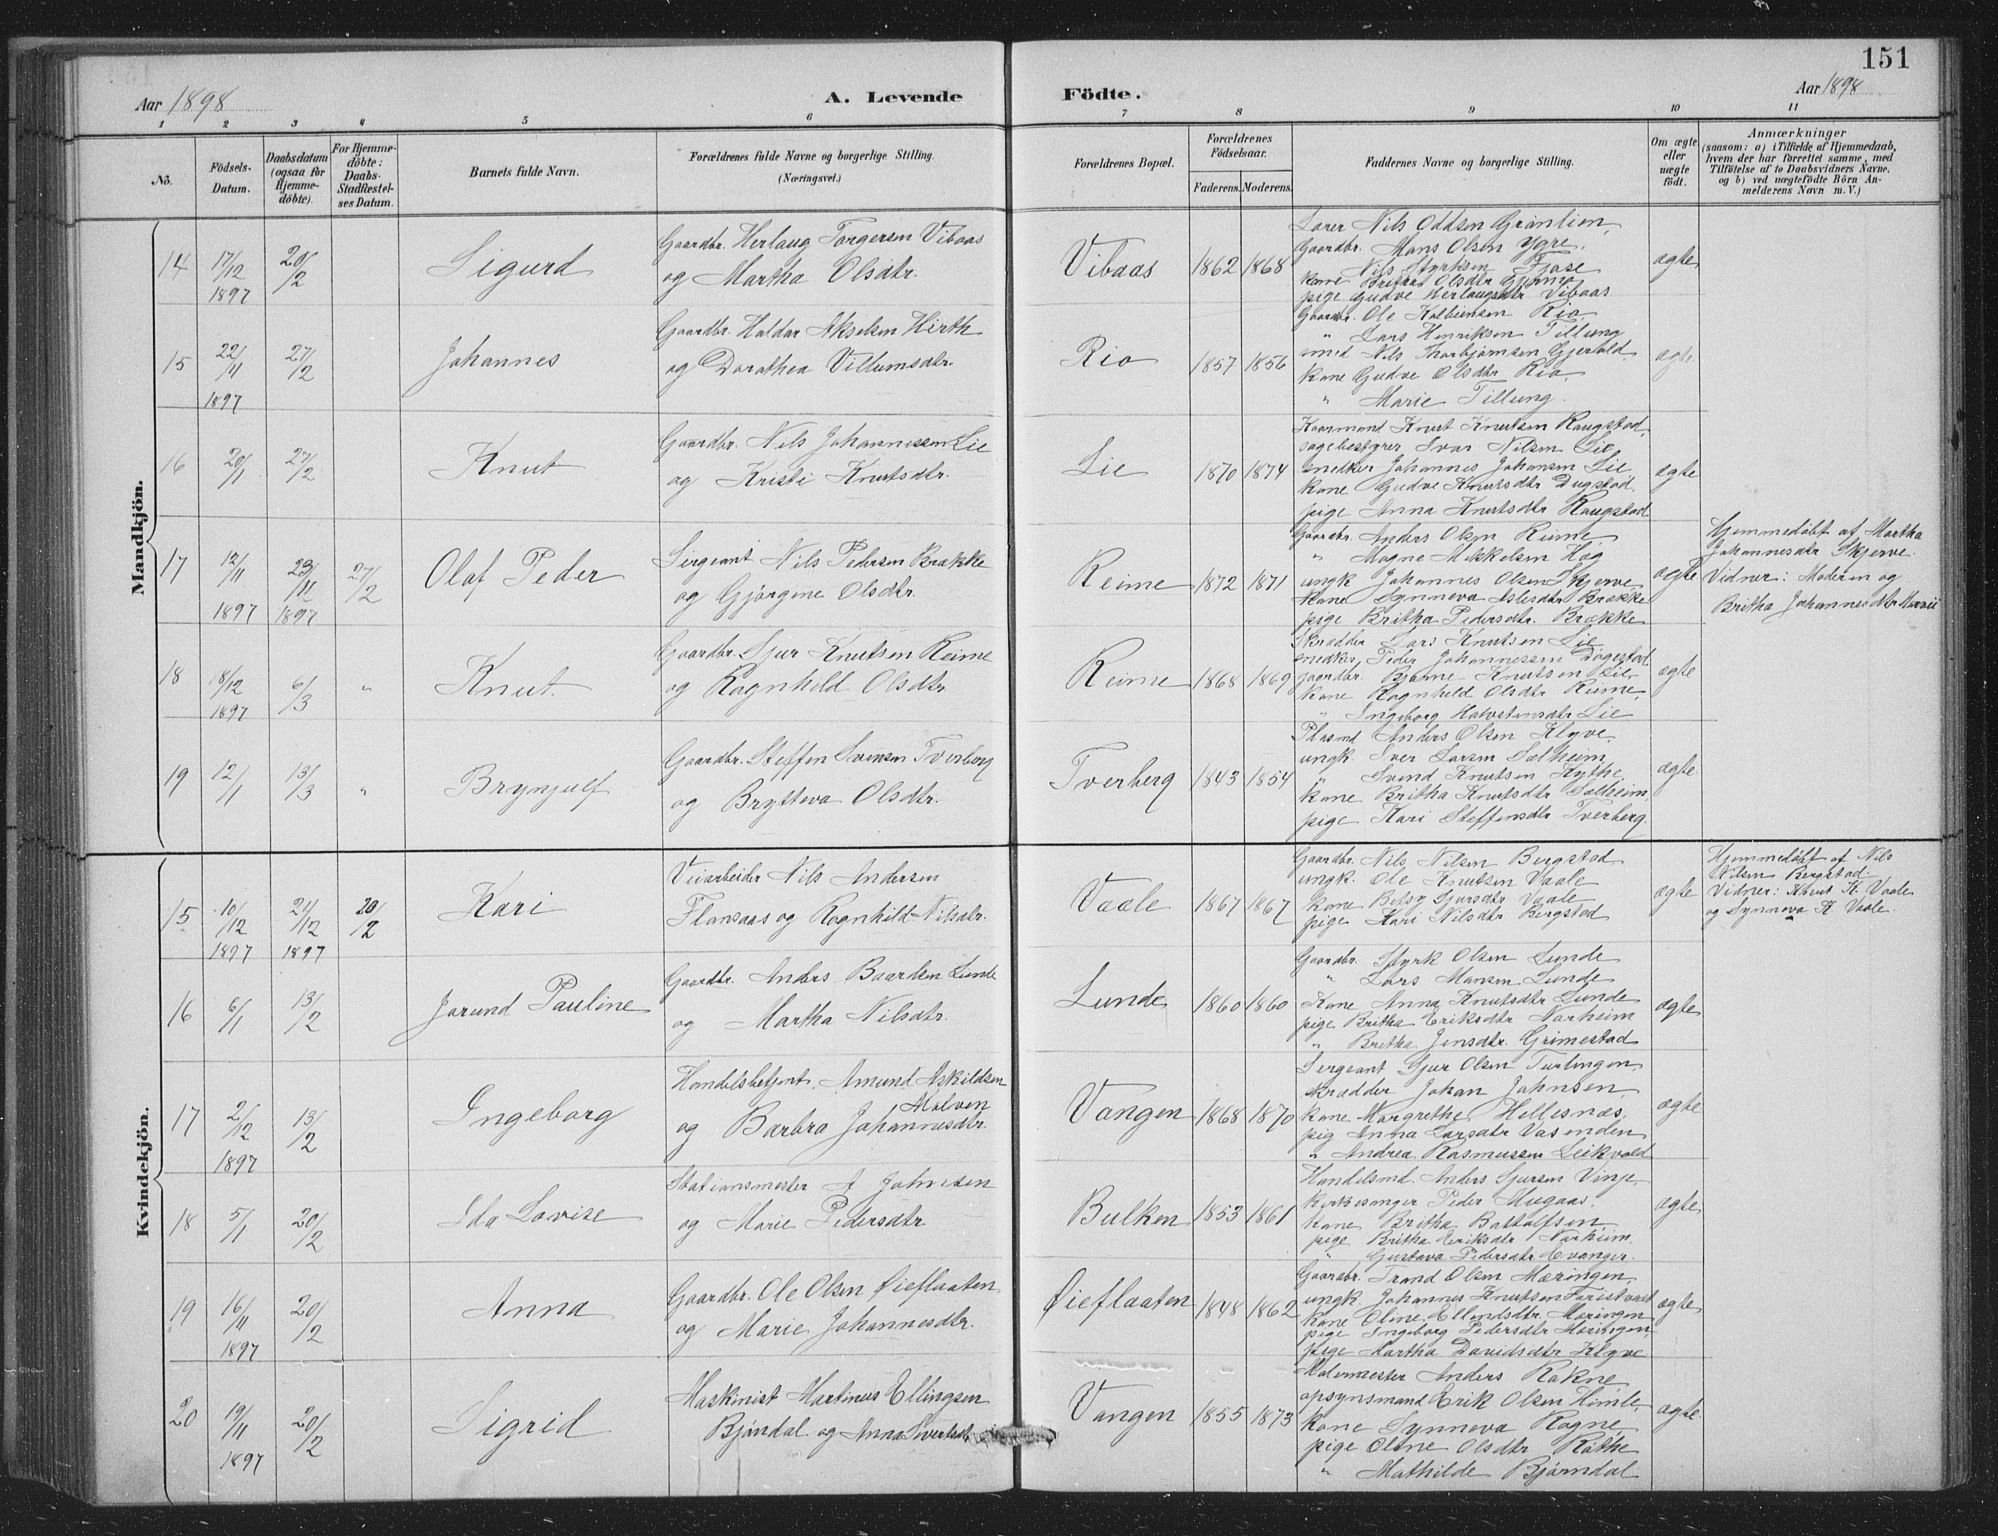 151
Aar 1898
A. Levende
Födte.
Aar 1898
1 2 3 4 5 6 7 8 9 10 11
No.
Födsels-
Datum.
Daabsdatum
(ogsaa for
Hjemme-
döbte).
For Hjemme-
döbte:
Daabs-
Stadfæstel-
ses Datum.
Barnets fulde Navn.
Forældrenes fulde Navne og borgerlige Stilling.
(Næringsvei.)
Forældrenes Bopæl.
Forældrenes
Födselsaar.
Faderens. Moderens.
Faddernes Navne og borgerlige Stilling.
Om ægte
eller
uægte
födt.
Anmærkninger
(saasom: a) i Tilfælde af Hjemmedaab,
hvem der har forrettet samme, med
Tilföielse af to Daabsvidners Navne.
og b) ved uægtefödte Börn An-
melderens Navn m. V.)
Mandkjön.
14 17/12 1897 20/2
Sigurd
Gaardbr. Herlaug Torgersen Vibaas
og Martha Olsdtr.
Vibaas 1862 1868
Lærer Nils Oddsen Grönlien,
Gaardbr. Mons Olsen Ygre.
" Nils Styrksen Tjose
kone Britha Olsdtr Gjerme
pige Gudve Herlaugsdtr Vibaas
ægte
15 22/11 1897 27/2
Johannes
Gaardbr. Haldor Akselsen Hirth
og Dorothea Villumsdtr.
Rio 1857 1856
Gaardbr. Ole Kolbeinsen Rio,
" Lars Henriksen Tillung
smed Nils Thorbjørnsen Gjerald
kone Gudve Olsdtr Rio,
" Marie Tillung.
ægte
16 20/1 27/2
Knut
Gaardbr. Nils Johannessen Lie
og Kristi Knutsdtr.
Lie 1870 1874
Kaarmand Knut Knutsen Raugstad,
sagebestyrer Ivar Nilsen Lie
snedker Johannes Johansen Lie
kone Gudve Knutsdtr Dugstad
pige Anna Knutsdtr Raugstad
ægte
17 12/11 1897 23/11 1897 27/2
Olaf Peder
Sergeant Nils Pedersen Brække
og Gjörgine Olsdtr.
Reime 1872 1871
Gaardbr. Anders Olsen Reime,
" Mogne Mikkelsen Hæg
ungk Johannes Olsen Skjerve
kone Synneva Aslesdtr Brække
pige Britha Pedersdtr. Brække
ægte
Hjemmedöbt af Martha
Johannesdtr Skjerve.
Vidner: Moderen og
Britha Johannesdtr
18 18/12 1897 6/3 "
Knut.
Gaardbr. Sjur Knutsen Reime
og Ragnhild Olsdtr
Reime 1868 1869
Skrædder Lars Knutsen Lie
snedker Peder Johannessen Dagestad
gaardbr. Bjarne Knutsen
kone Ragnhild Olsdtr Reime,
" Ingeborg Halvstensdtr Lie
ægte
19 12/1 13/3 "
Brynjulf
Gaardbr. Steffen Svensen Tverberg
og Brytteva Olsdtr.
Tverberg 1843 1854
Plasmd Anders Olsen Klyve,
ungk. Iver Larsen Sælheim,
" Svend Knutsen Kythe,
kone Britha Knutsdtr Sælheim,
pige Kari Steffensdtr Tverberg
ægte
Kvindekjön.
15 10/12 1897 21/12 1897 20/2
Kari
Veiarbeider Nils Andersen
Flansaas og Ragnhild Nilsdtr.
Vaale 1867 1867
Gaardbr. Nils Nilsen Bergstad
ungk. Ole Knutsen Vaale
kone Betsy Sjursdtr Vaale
pige Kari Nilsdtr Bergstad
ægte
Hjemmedöbt af Nils
Nilsen Bergstad
Vidner: Knut K. Vaale
og Synneva K. Vaale.
16 6/1 13/2
Jorund Pauline
Gaardbr. Anders Baarden Lunde
og Martha Nilsdtr.
Lunde 1860 1860
Gaardbr. Styrk Olsen Lunde
" Lars Monsen Lunde
Kone Anna Knutsdtr Lunde
pige Britha Eriksdtr Norheim
" Britha Jensdtr. Grimestad
ægte
17 2/12 1897 13/2
Ingeborg
Handelsbetjent. Amund Askildsen
Molven
og Barbro Johannesdtr
Vangen 1868 1870
Sergeant Sjur Olsen Turlingen
skrædder Johan Johnsen
kone Margrethe Hellesnæs,
pig Anna Larsdtr Vasenden
" Andrea Rasmussen Leikvold
ægte
18 5/1 20/2
Ida Lovise
Stationsmester A Johnsen
og Marie Pedersdtr
Bulken 1853 1861
Handelsmd. Anders Sjursen Vinje
kirkesanger Peder Mugaas,
kone Britha Bottolfsen,
pige Britha Eriksdtr Norheim,
" Gustava Pedersdtr Evanger.
ægte
19 16/11 1897 20/2
Anna
Gaardbr. Ole Olsen Øieflaaten,
og Marie Johannesdtr.
Øieflaaten 1848 1862
Gaardbr. Trond Olsen Mæringen,
ungk. Johannes Knutsen Faristveit
kone Oline Ellendsdtr. Møringen
pige Ingeborg Pedersdtr Møringen
pige Martha Davidsdtr Klyve
ægte
20 19/11 1897 20/2
Sigrid
Maskinist Martinus Ellingsen
Bjørndal og Anna Sivertsdtr
Vangen 1855 1873
Malermester Anders Røkne
opsynsmand Erik Olsen Himle,
kone Synneva Rogne,
pige Oline Olsdtr Røthe
" Mathilde Bjørndal
ægte